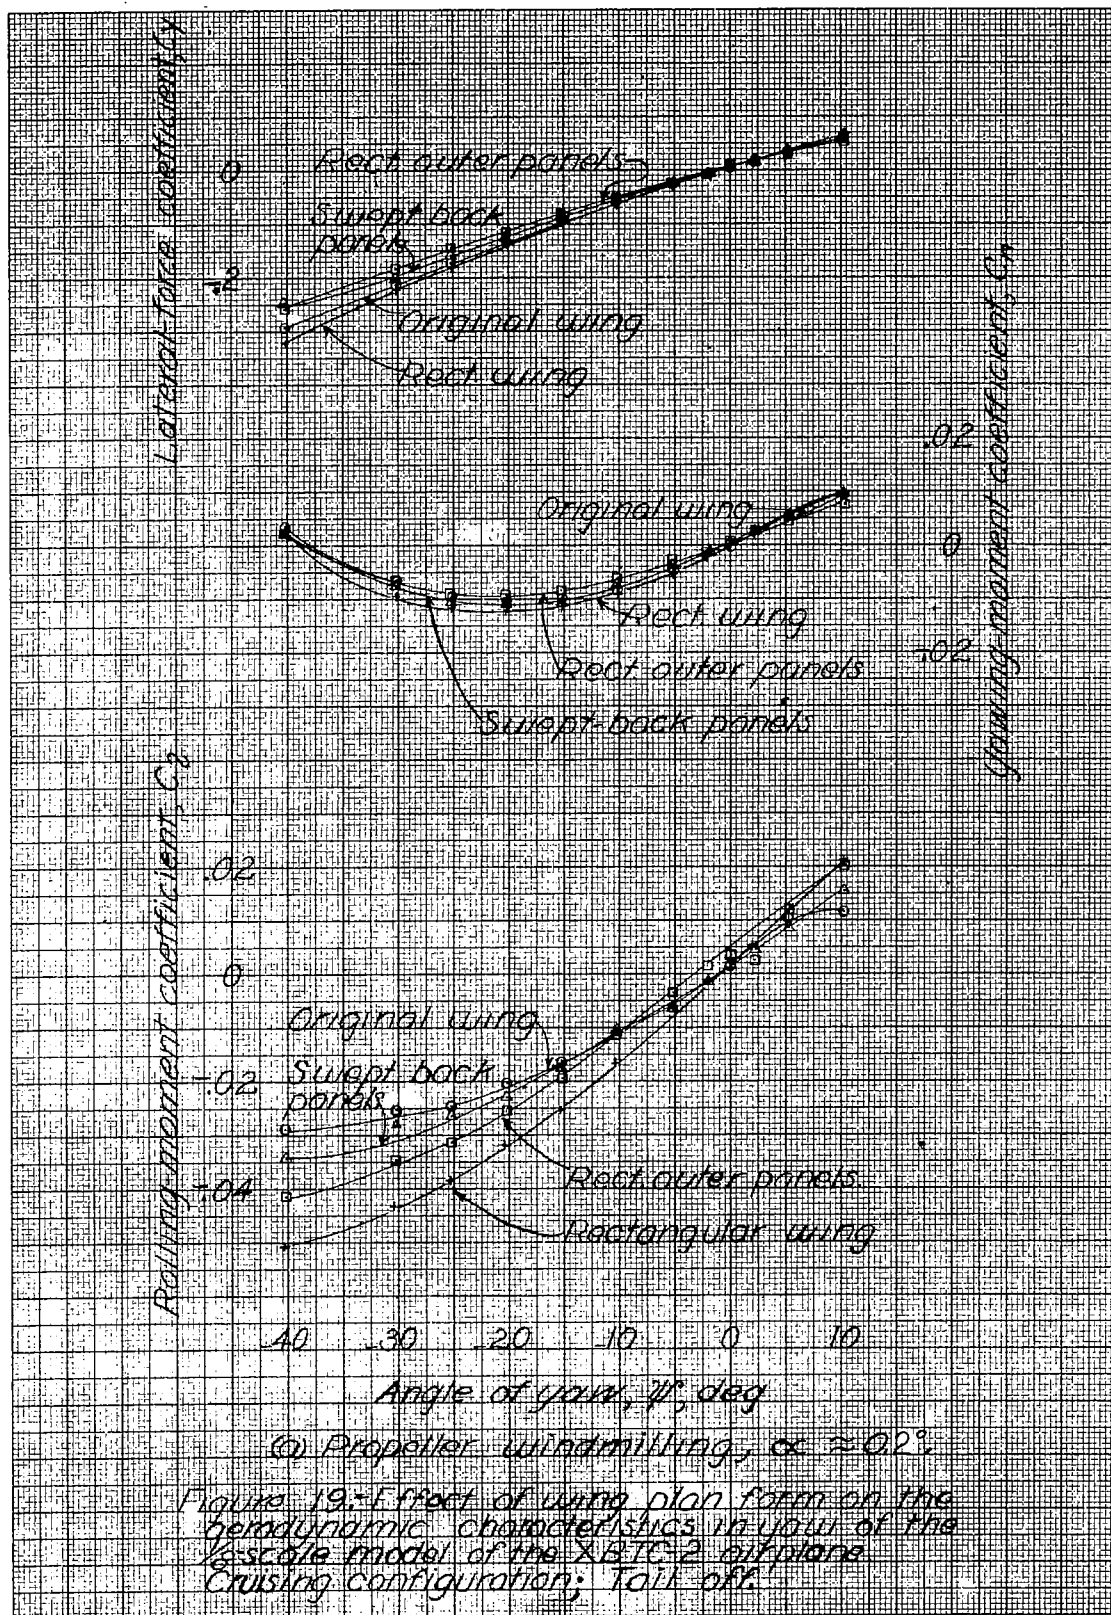 Lateral-force coefficient, Cy
0
-.2
Rect. outer panels
Swept back
panels
Original wing
Rect. wing
Yawing-moment coefficient, Cn
.02
0
-.02
Original wing
Rect. wing
Rect. outer panels
Swept-back panels
Rolling-moment coefficient, Cl
.02
0
-.02
-.04
Original wing
Swept back
panels
Rect. outer panels.
Rectangular wing
-40 -30 -20 -10 0 10
Angle of yaw, ψ, deg
(a) Propeller windmilling, α ≈ 0.2°.
Figure 19.- Effect of wing plan form on the
aerodynamic characteristics in yaw of the
-scale model of the XBTC-2 airplane
Cruising configuration; Tail off.